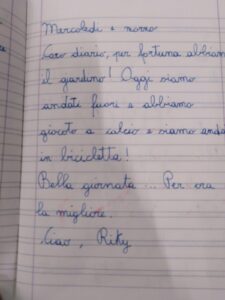 Mercoledì e nonno
Caro diario, per fortuna abbiamo
il giardino! Oggi siamo
andati fuori e abbiamo
giocato a calcio e siamo anda
in bicicletta!
Bella giornata ... Per ora
la migliore.
Ciao, Riky